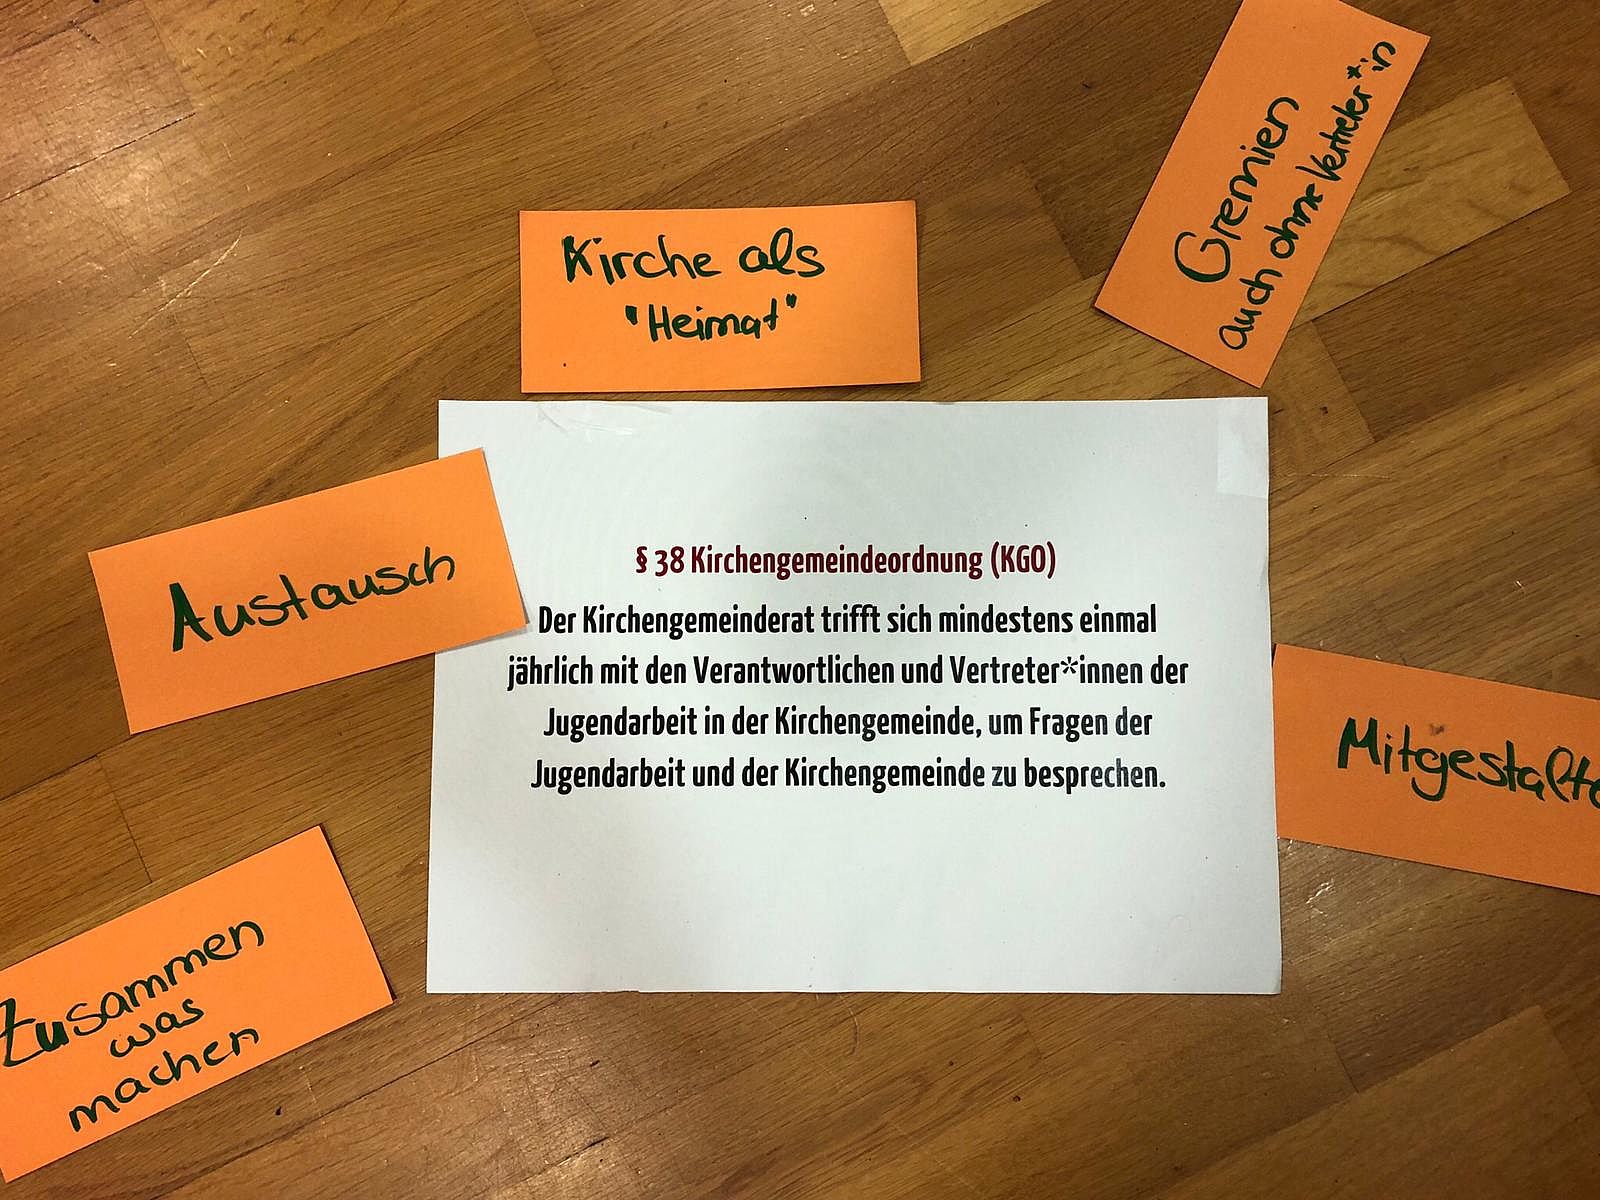 Gremien
auch ohne Vertreter*in
Kirche als
"Heimat"
Austausch
§ 38 Kirchengemeindeordnung (KGO)
Der Kirchengemeinderat trifft sich mindestens einmal
jährlich mit den Verantwortlichen und Vertreter*innen der
Jugendarbeit in der Kirchengemeinde, um Fragen der
Jugendarbeit und der Kirchengemeinde zu besprechen.
Mitgestalte
Zusammen
was
machen